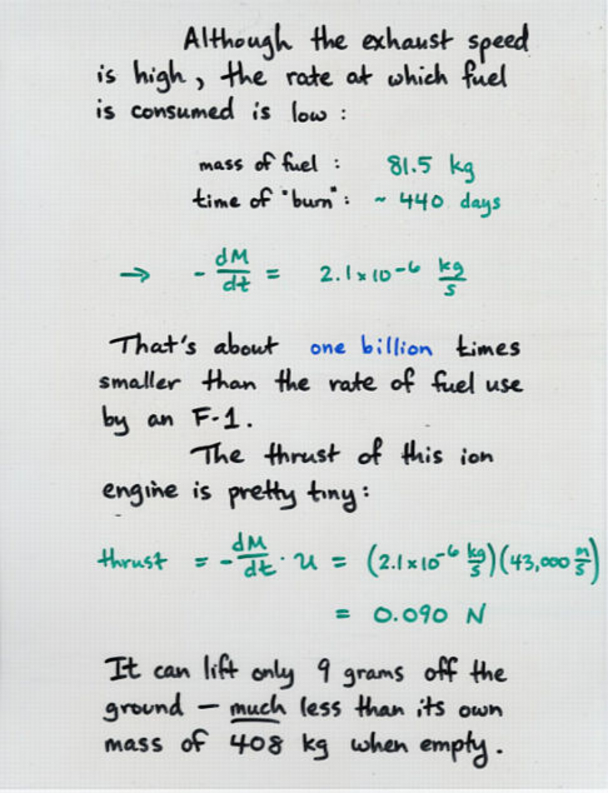 Although the exhaust speed
is high, the rate at which fuel
is consumed is low:
mass of fuel: 81.5 kg
time of "burn": ~ 440 days
→ - dM/dt = 2.1 x 10^-6 kg/s
That's about one billion times
smaller than the rate of fuel use
by an F-1.
The thrust of this ion
engine is pretty tiny:
thrust = - dM/dt · u = (2.1 x 10^-6 kg/s)(43,000 m/s)
= 0.090 N
It can lift only 9 grams off the
ground — much less than its own
mass of 408 kg when empty.